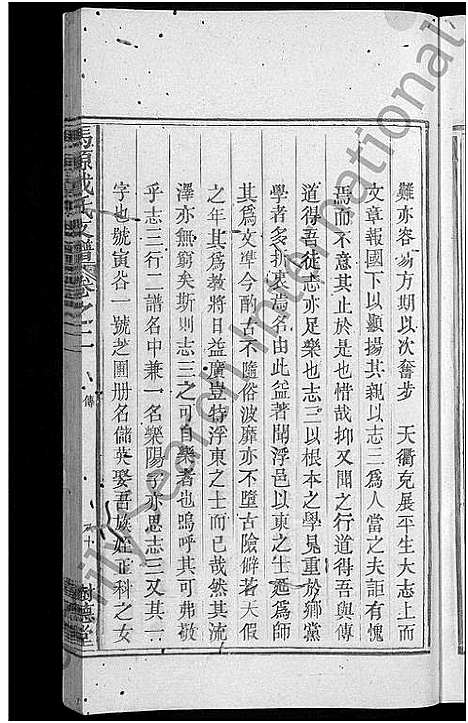 難亦容易方期以次奮步　天衢克展平生大志上而
文章報國下以顯揚其親以志三爲人當之夫詎有愧
焉而不意其止於是也惜哉抑又聞之行道得吾與傳
道得吾徒志亦足樂也志三以根本之學見重於鄉黨
學者多折衷焉名由此益著閩浮邑以東之士遁爲師
其爲文準今酌古不隨俗波靡亦不墮古險僻若天假
之年其爲教將日益廣豈特浮東之士而已哉然其流
澤亦無窮矣斯則志三之可自樂者也嗚呼其可弗敬
乎志三行二譜名中兼一名樂陽子亦思志三又其一
字也號寅谷一號芝圃册名儲英娶吾族姪正科之女
馬源戴氏支譜卷之二
傳
樹德堂
Family Search International